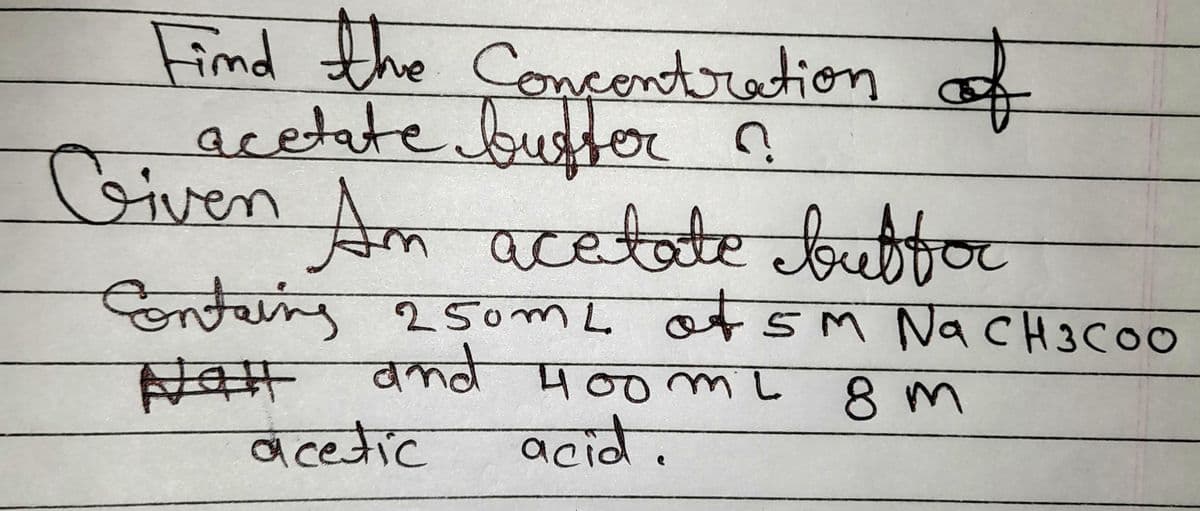 Find the Concentration of
acetate buffer ?
Given An acetate buffor
Contains 250mL of 5M NaCH3COO
and 400mL 8M
acetic acid.